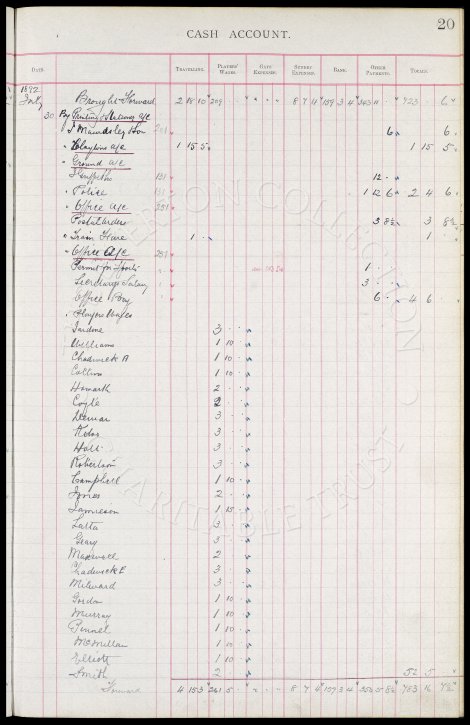 20
CASH ACCOUNT.
DATE. TRAVELLING. PLAYERS' WAGES. GATE EXPENSES. SUNDRY EXPENSES. BANK. OTHER PAYMENTS. TOTALS.
1892
July Brought Forward 2 18 10 209 8 7 4 159 3 4 343 11 723 6
30 By Printing & Stationery a/c
" J Mawdsley & Son 201 6 6
" Travelling a/c 1 15 5 1 15 5
" Ground a/c
Griffiths 151 12
" Police 151 1 12 6 2 4 6
" Office a/c 251
Postal Orders 3 8½ 3 8½
" Train Fare 1 1
" Office a/c 251
Permit for Sports 1
Secretary's Salary 3
Office Boy 6 4 6
" Players Wages
Jardine 3
Williams 1 10
Chadwick A 1 10
Collins 1 10
Howarth 2
Coyle 2
McLean 3
Kelso 3
Holt 3
Robertson 3
Campbell 1 10
Jones 2
Jamieson 1 15
Latta 3
Geary 3
Maxwell 2
Chadwick E 3
Milward 3
Gordon 1 10
Murray 1 10
Pinnel 1 10
McMillan 1 10
Elliott 1 10
Smith 2 52 5
Forward 4 15 3 261 5 8 7 4 159 3 4 350 5 8½ 783 16 7½
EVERTON COLLECTION
CHARITABLE TRUST